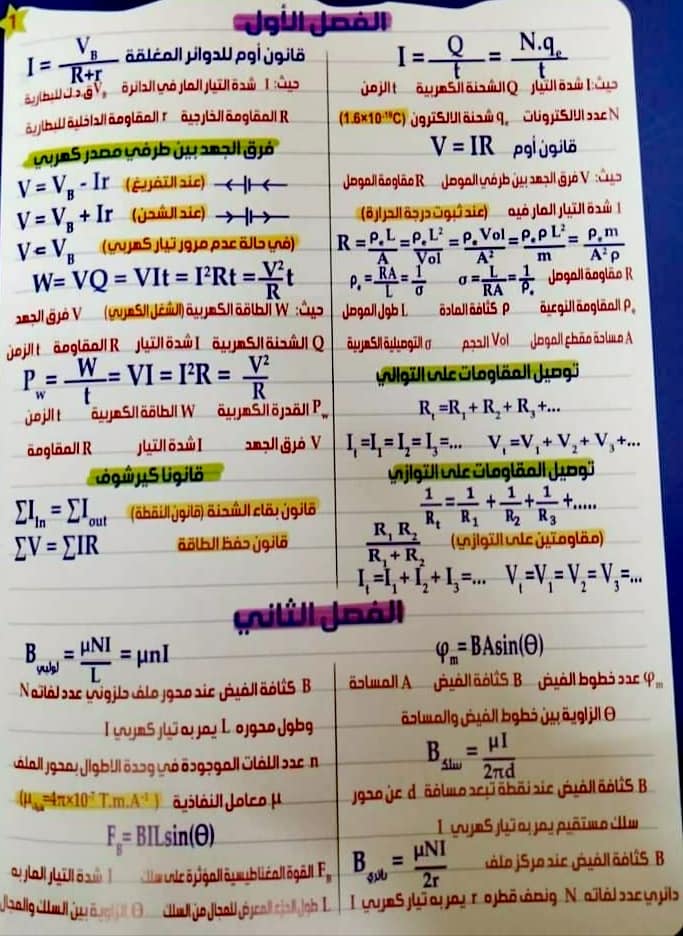 1
الفصل الأول
I = Q/t = N.qₑ/t
حيث: I شدة التيار Q الشحنة الكهربية t الزمن
N عدد الالكترونات qₑ شحنة الالكترون (1.6×10⁻¹⁹C)
قانون أوم V = IR
حيث: V فرق الجهد بين طرفي الموصل R مقاومة الموصل
I شدة التيار المار فيه (عند ثبوت درجة الحرارة)
R = ρₑL/A = ρₑL²/Vol = ρₑVol/A² = ρₑρL²/m = ρₑm/A²ρ
ρₑ = RA/L = 1/σ σ = L/RA = 1/ρₑ R مقاومة الموصل
ρₑ المقاومة النوعية ρ كثافة المادة L طول الموصل
A مساحة مقطع الموصل Vol الحجم σ التوصيلية الكهربية
توصيل المقاومات على التوالي
Rₜ = R₁ + R₂ + R₃ +...
Iₜ = I₁ = I₂ = I₃ =... Vₜ = V₁ + V₂ + V₃ +...
توصيل المقاومات على التوازي
1/Rₜ = 1/R₁ + 1/R₂ + 1/R₃ +.....
(مقاومتين على التوازي) R₁ R₂/R₁ + R₂
Iₜ = I₁ + I₂ + I₃ =... Vₜ = V₁ = V₂ = V₃ =...
قانون أوم للدوائر المغلقة I = V_B/R+r
حيث: I شدة التيار المار في الدائرة V_B ق.د.ك للبطارية
R المقاومة الخارجية r المقاومة الداخلية للبطارية
فرق الجهد بين طرفي مصدر كهربي
V = V_B - Ir (عند التفريغ)
V = V_B + Ir (عند الشحن)
V = V_B (في حالة عدم مرور تيار كهربي)
W = VQ = VIt = I²Rt = V²/R t
حيث: W الطاقة الكهربية (الشغل الكهربي) V فرق الجهد
Q الشحنة الكهربية I شدة التيار R المقاومة t الزمن
P_w = W/t = VI = I²R = V²/R
P_w القدرة الكهربية W الطاقة الكهربية t الزمن
V فرق الجهد I شدة التيار R المقاومة
قانونا كيرشوف
ΣI_in = ΣI_out قانون بقاء الشحنة (قانون النقطة)
ΣV = ΣIR قانون حفظ الطاقة
الفصل الثاني
φₘ = BAsin(Θ)
φₘ عدد خطوط الفيض B كثافة الفيض A المساحة
Θ الزاوية بين خطوط الفيض والمساحة
B سلك = μI/2πd
B كثافة الفيض عند نقطة تبعد مسافة d عن محور
سلك مستقيم يمر به تيار كهربي I
B كثافة الفيض عند مركز ملف B دائري = μNI/2r
دائري عدد لفاته N ونصف قطره r يمر به تيار كهربي I
B لولبي = μNI/L = μnI
B كثافة الفيض عند محور ملف حلزوني عدد لفاته N
وطول محوره L يمر به تيار كهربي I
n عدد اللفات الموجودة في وحدة الاطوال بمحور الملف
μ معامل النفاذية (μ =4π×10⁻⁷ T.m.A⁻¹)
F_B = BILsin(Θ)
F_B القوة المغناطيسية المؤثرة على سلك I شدة التيار المار به
L طول الجزء المعرض للمجال من السلك Θ الزاوية بين السلك والمجال